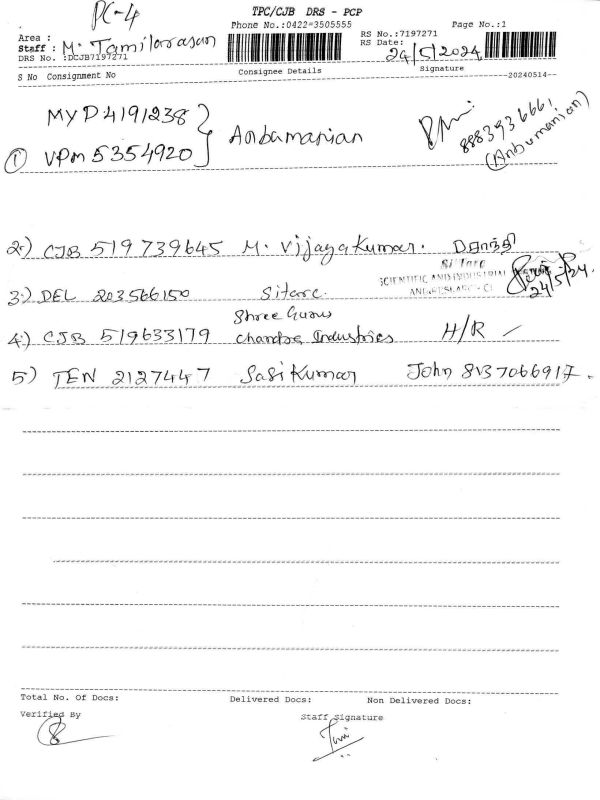 PC-4
TPC/CJB DRS - PCP
Phone No.:0422-3505555
Page No.:1
Area :
Staff : M. Tamilarasan
RS No.:7197271
RS Date: 24/5/2024
DRS No. :DCJB7197271
S No Consignment No Consignee Details Signature --20240514--
MYD4191238
① VPM5354920 Anbumanian
8883936661
(Anbumanian)
2.) CJB 519739645 M. Vijayakumar.
3.) DEL 203566150 Sitarc
Si'Tarc
SCIENTIFIC AND INDUSTRIAL
24/5/24.
4.) CJB 519633179 Shree Guru
Chandra Industries H/R
5) TEN 2127447 Sasikumar John 8137066917.
Total No. Of Docs: Delivered Docs: Non Delivered Docs:
Verified By Staff Signature